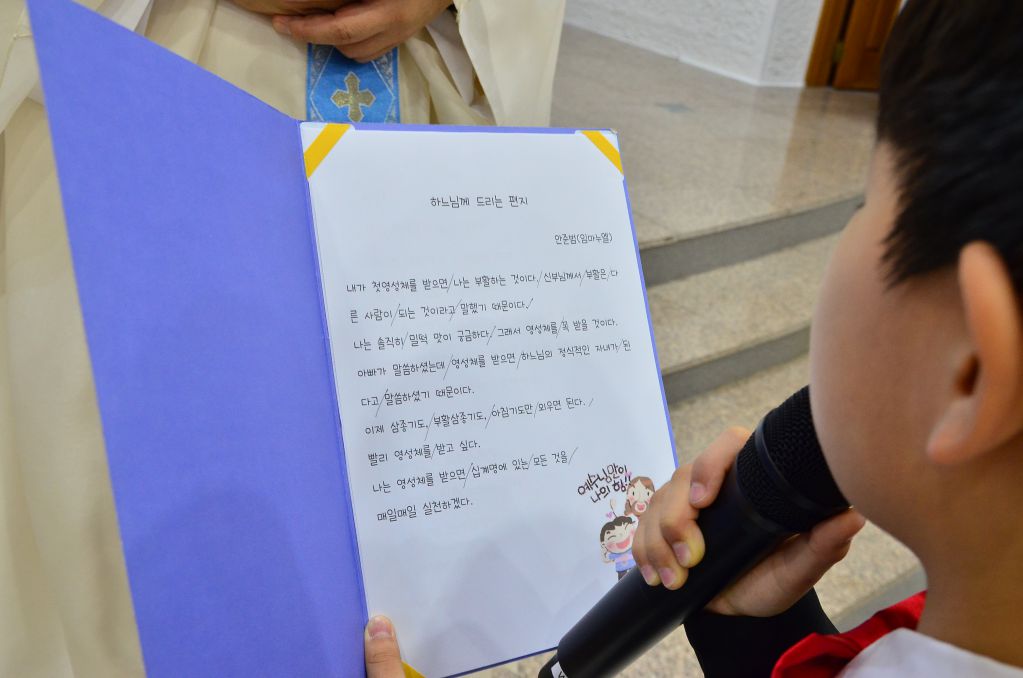 하느님께 드리는 편지
안준범(임마누엘)
내가 첫영성체를 받으면 나는 부활하는 것이다. 신부님께서 부활은 다
른 사람이 되는 것이라고 말했기 때문이다.
나는 솔직히 밀떡 맛이 궁금하다. 그래서 영성체를 꼭 받을 것이다.
아빠가 말씀하셨는데 영성체를 받으면 하느님의 정식적인 자녀가 된
다고 말씀하셨기 때문이다.
이제 삼종기도, 부활삼종기도, 아침기도만 외우면 된다.
빨리 영성체를 받고 싶다.
나는 영성체를 받으면 십계명에 있는 모든 것을
매일매일 실천하겠다.
예수님만이
나의 힘!!